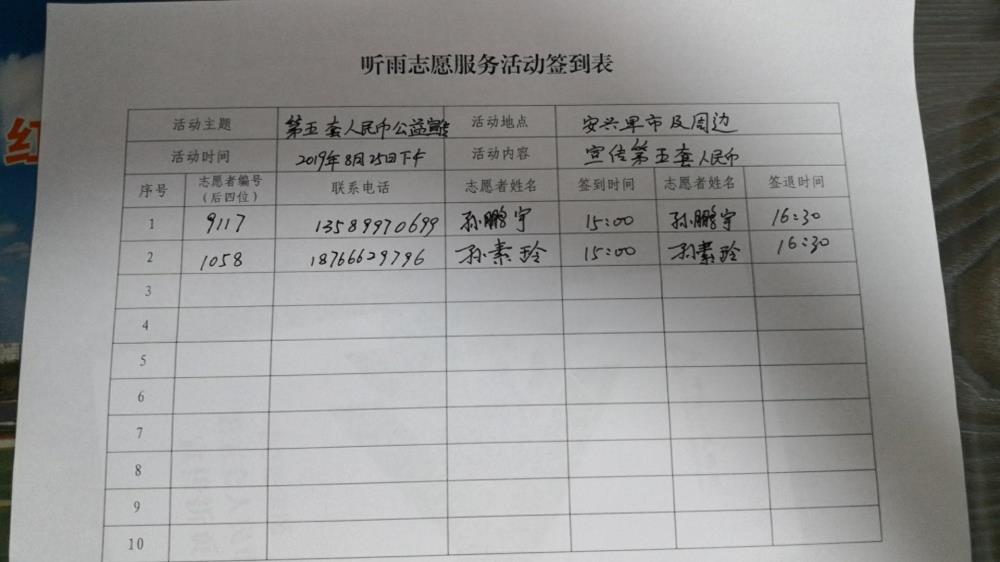 红
听雨志愿服务活动签到表
活动主题 第五套人民币公益宣传 活动地点 安兴早市及周边
活动时间 2019年8月25日下午 活动内容 宣传第五套人民币
序号 志愿者编号（后四位） 联系电话 志愿者姓名 签到时间 志愿者姓名 签退时间
1 9117 13589970699 孙鹏宇 15:00 孙鹏宇 16:30
2 1058 18766629796 孙素玲 15:00 孙素玲 16:30
3
4
5
6
7
8
9
10